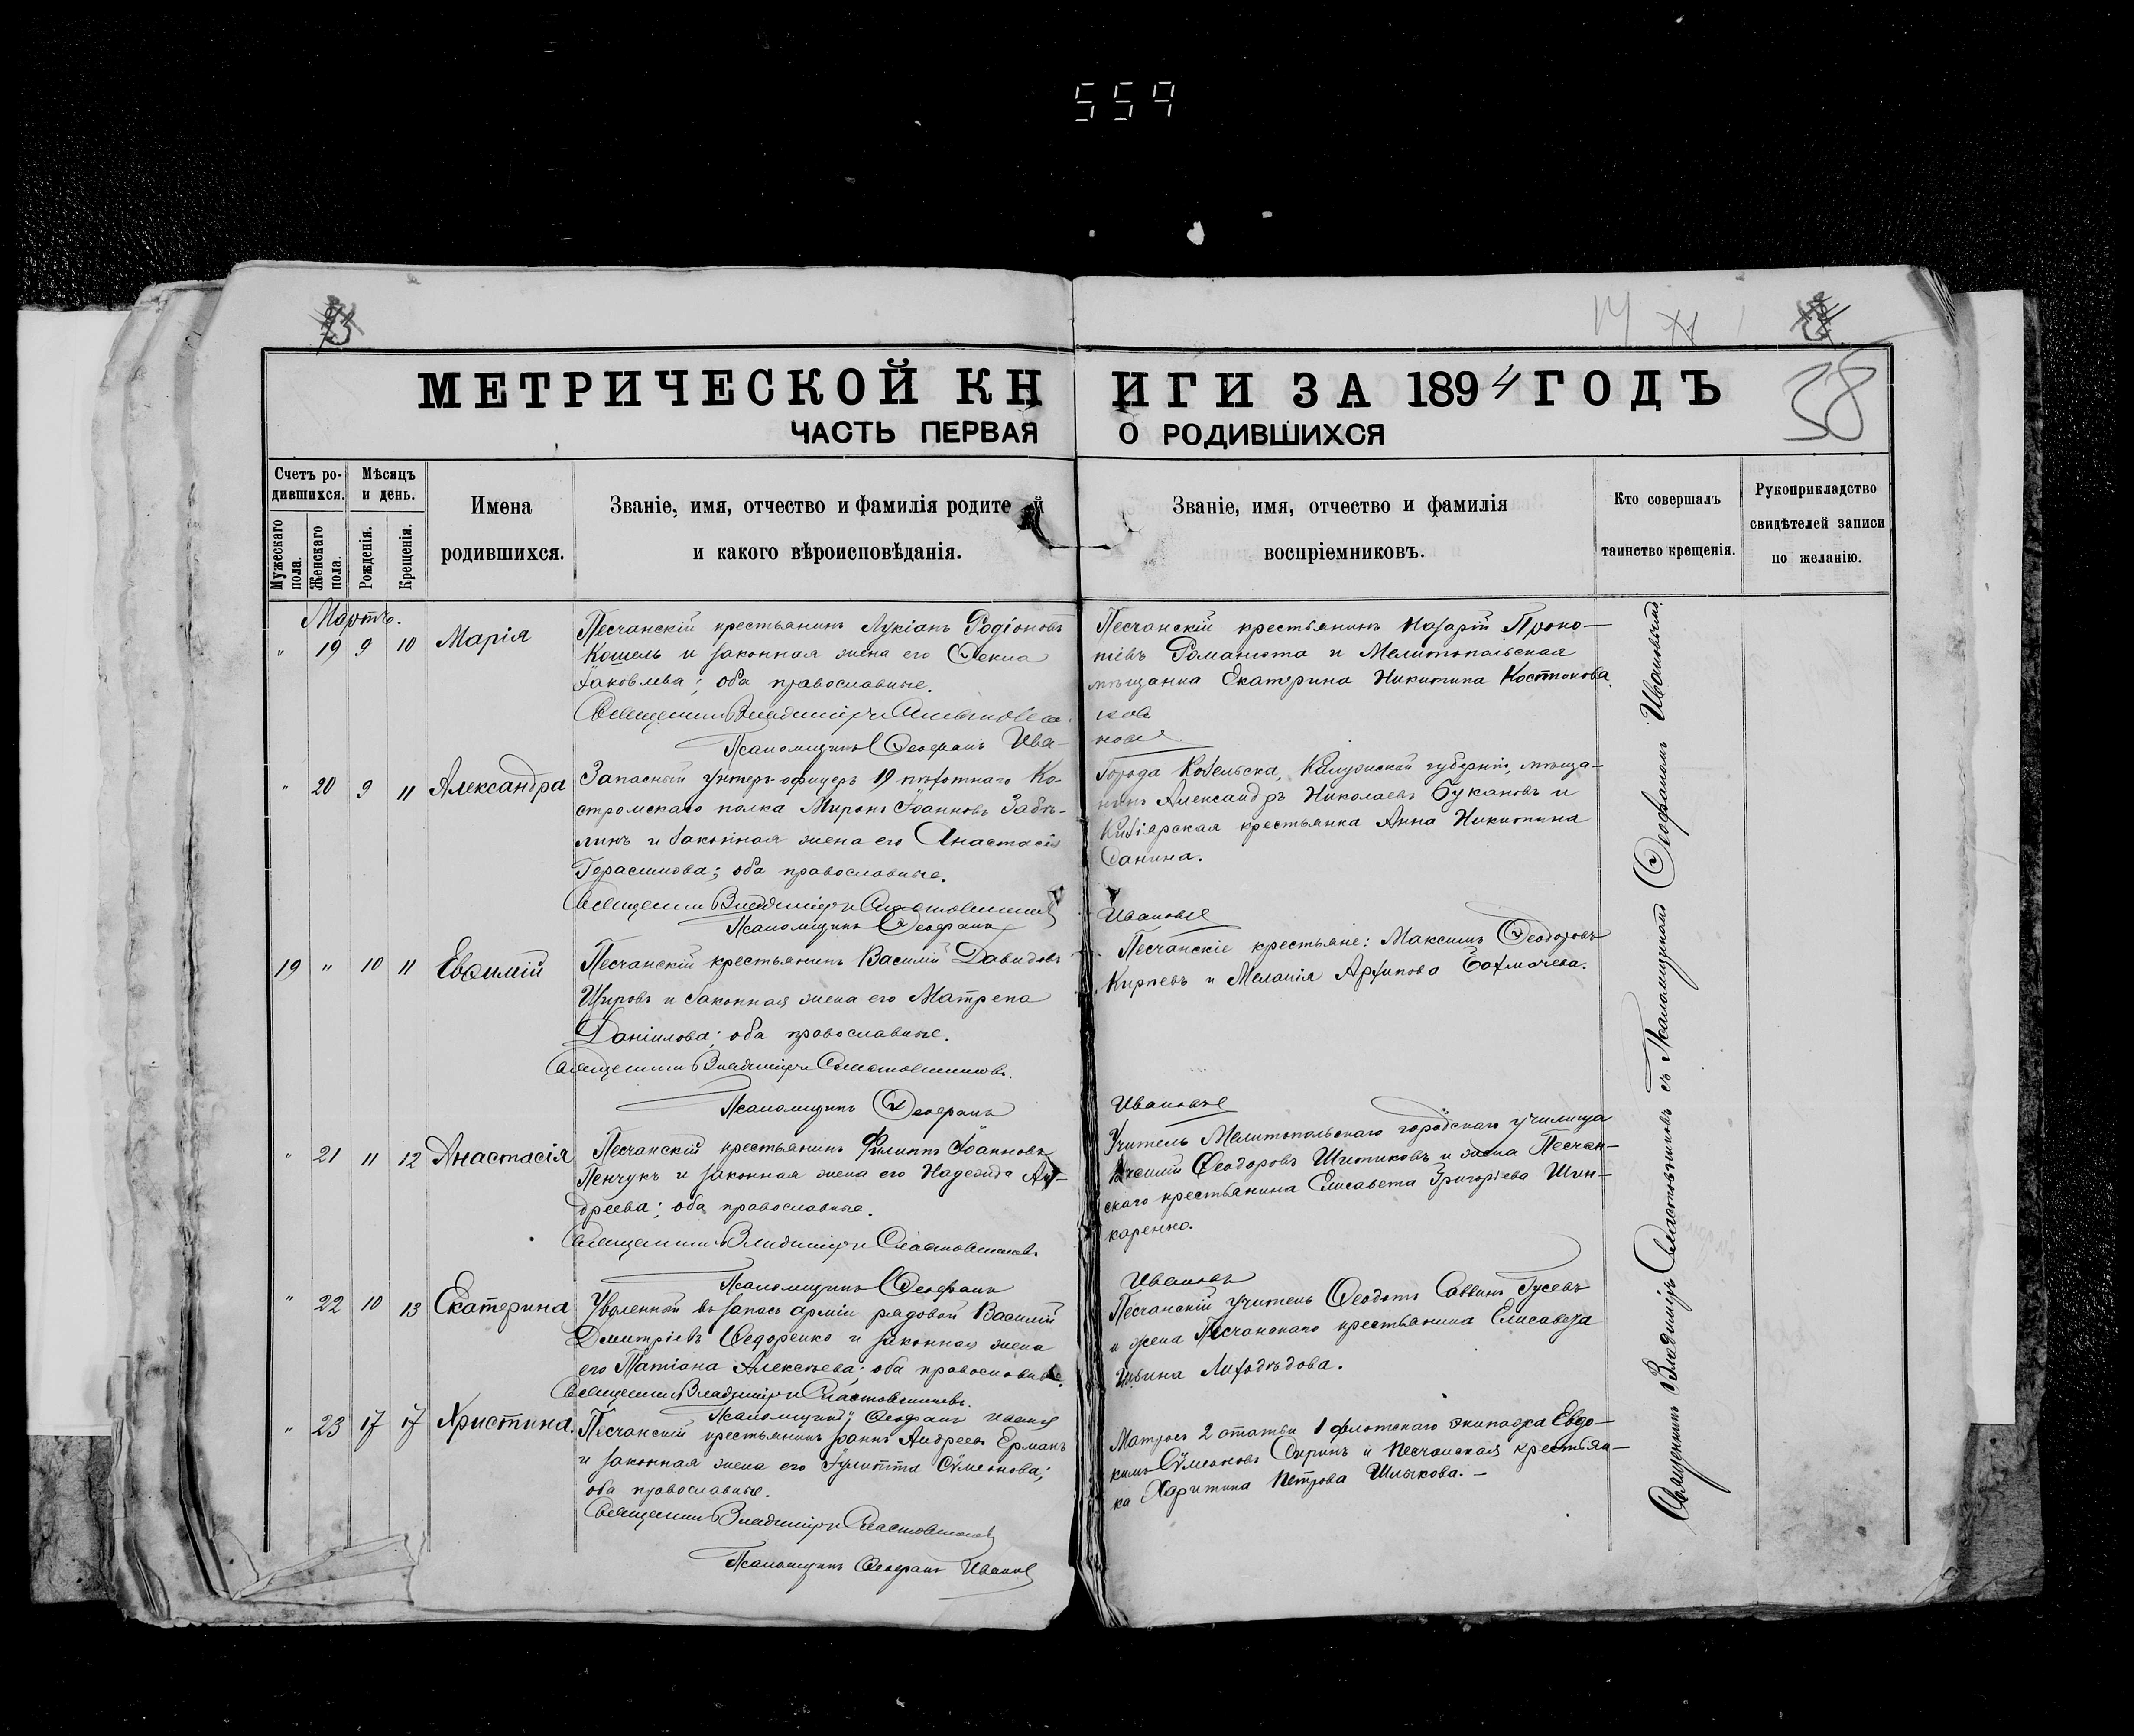 559
38
МЕТРИЧЕСКОЙ КНИГИ ЗА 1894 ГОДЪ
ЧАСТЬ ПЕРВАЯ О РОДИВШИХСЯ
Счетъ ро-
дившихся.
Мужескаго
пола.
Женскаго
пола.
Мѣсяцъ
и день.
Рожденія.
Крещенія.
Имена
родившихся.
Званіе, имя, отчество и фамилія родите й
и какого вѣроисповѣданія.
Званіе, имя, отчество и фамилія
воспріемниковъ.
Кто совершалъ
таинство крещенія.
Рукоприкладство
свидѣтелей записи
по желанію.
Мартъ.
" 19 9 10 Марія
Песчанскій крестьянинъ Лукіанъ Родіоновъ
Кошель и законная жена его Ѳекла
Іаковлева; оба православные.
Священникъ Владиміръ
Псаломщикъ Ѳеофанъ Ива-
Песчанскій крестьянинъ Назарій Проко-
піевъ Романюта и Мелитопольская
мѣщанка Екатерина Никитина Костюкова
новъ
" 20 9 11 Александра
Запасный унтеръ-офицеръ 19 пѣхотнаго Ко-
стромскаго полка Миронъ Іоанновъ Забѣ-
линъ и законная жена его Анастасія
Герасимова; оба православные.
Священникъ Владиміръ Сластовниковъ
Псаломщикъ Ѳеофанъ
Города Козельска, Калужской губерніи, мѣща-
нинъ Александръ Николаевъ Букановъ и
крестьянка Анна Никитина
Санина.
Ивановъ
19 " 10 11 Евѳимій
Песчанскій крестьянинъ Василій Давидовъ
Щировъ и законная жена его Матрена
Даніилова; оба православные.
Священникъ Владиміръ Сластовниковъ.
Псаломщикъ Ѳеофанъ
Песчанскіе крестьяне: Максимъ Ѳеодоровъ
Кирпевъ и Меланія Архипова Бахмачева.
Ивановъ
" 21 11 12 Анастасія
Песчанскій крестьянинъ Филиппъ Іоанновъ
Пенчукъ и законная жена его Надежда Ан-
дреева; оба православные.
Священникъ Владиміръ Сластовниковъ
Псаломщикъ Ѳеофанъ
Учитель Мелитопольскаго городскаго училища
Василій Ѳеодоровъ Шитиковъ и жена Песчан-
скаго крестьянина Елисавета Григоріева Шин-
каренко.
Ивановъ
" 22 10 13 Екатерина
Уволенный въ запасъ арміи рядовой Василій
Димитріевъ Ѳедоренко и законная жена
его Татіана Алексѣева; оба православные.
Священникъ Владиміръ Сластовниковъ.
Псаломщикъ Ѳеофанъ Ивановъ
Песчанскій учитель Ѳеодотъ Саввинъ Гусевъ
и жена Песчанскаго крестьянина Елисавета
Ильина Лиходѣдова.
" 23 17 17 Христина.
Песчанскій крестьянинъ Іоаннъ Андреевъ Ермакъ
и законная жена его Іулитта Сѵмеонова;
оба православные.
Священникъ Владиміръ Сластовниковъ
Псаломщикъ Ѳеофанъ Ивановъ
Матросъ 2 статьи 1 флотскаго экипажа Евдо-
кимъ Сѵмеоновъ Сиринъ и Песчанская крестьян-
ка Харитина Петрова Шлыкова.-
Священникъ Владиміръ Сластовниковъ съ Псаломщикомъ Ѳеофаномъ Ивановымъ.